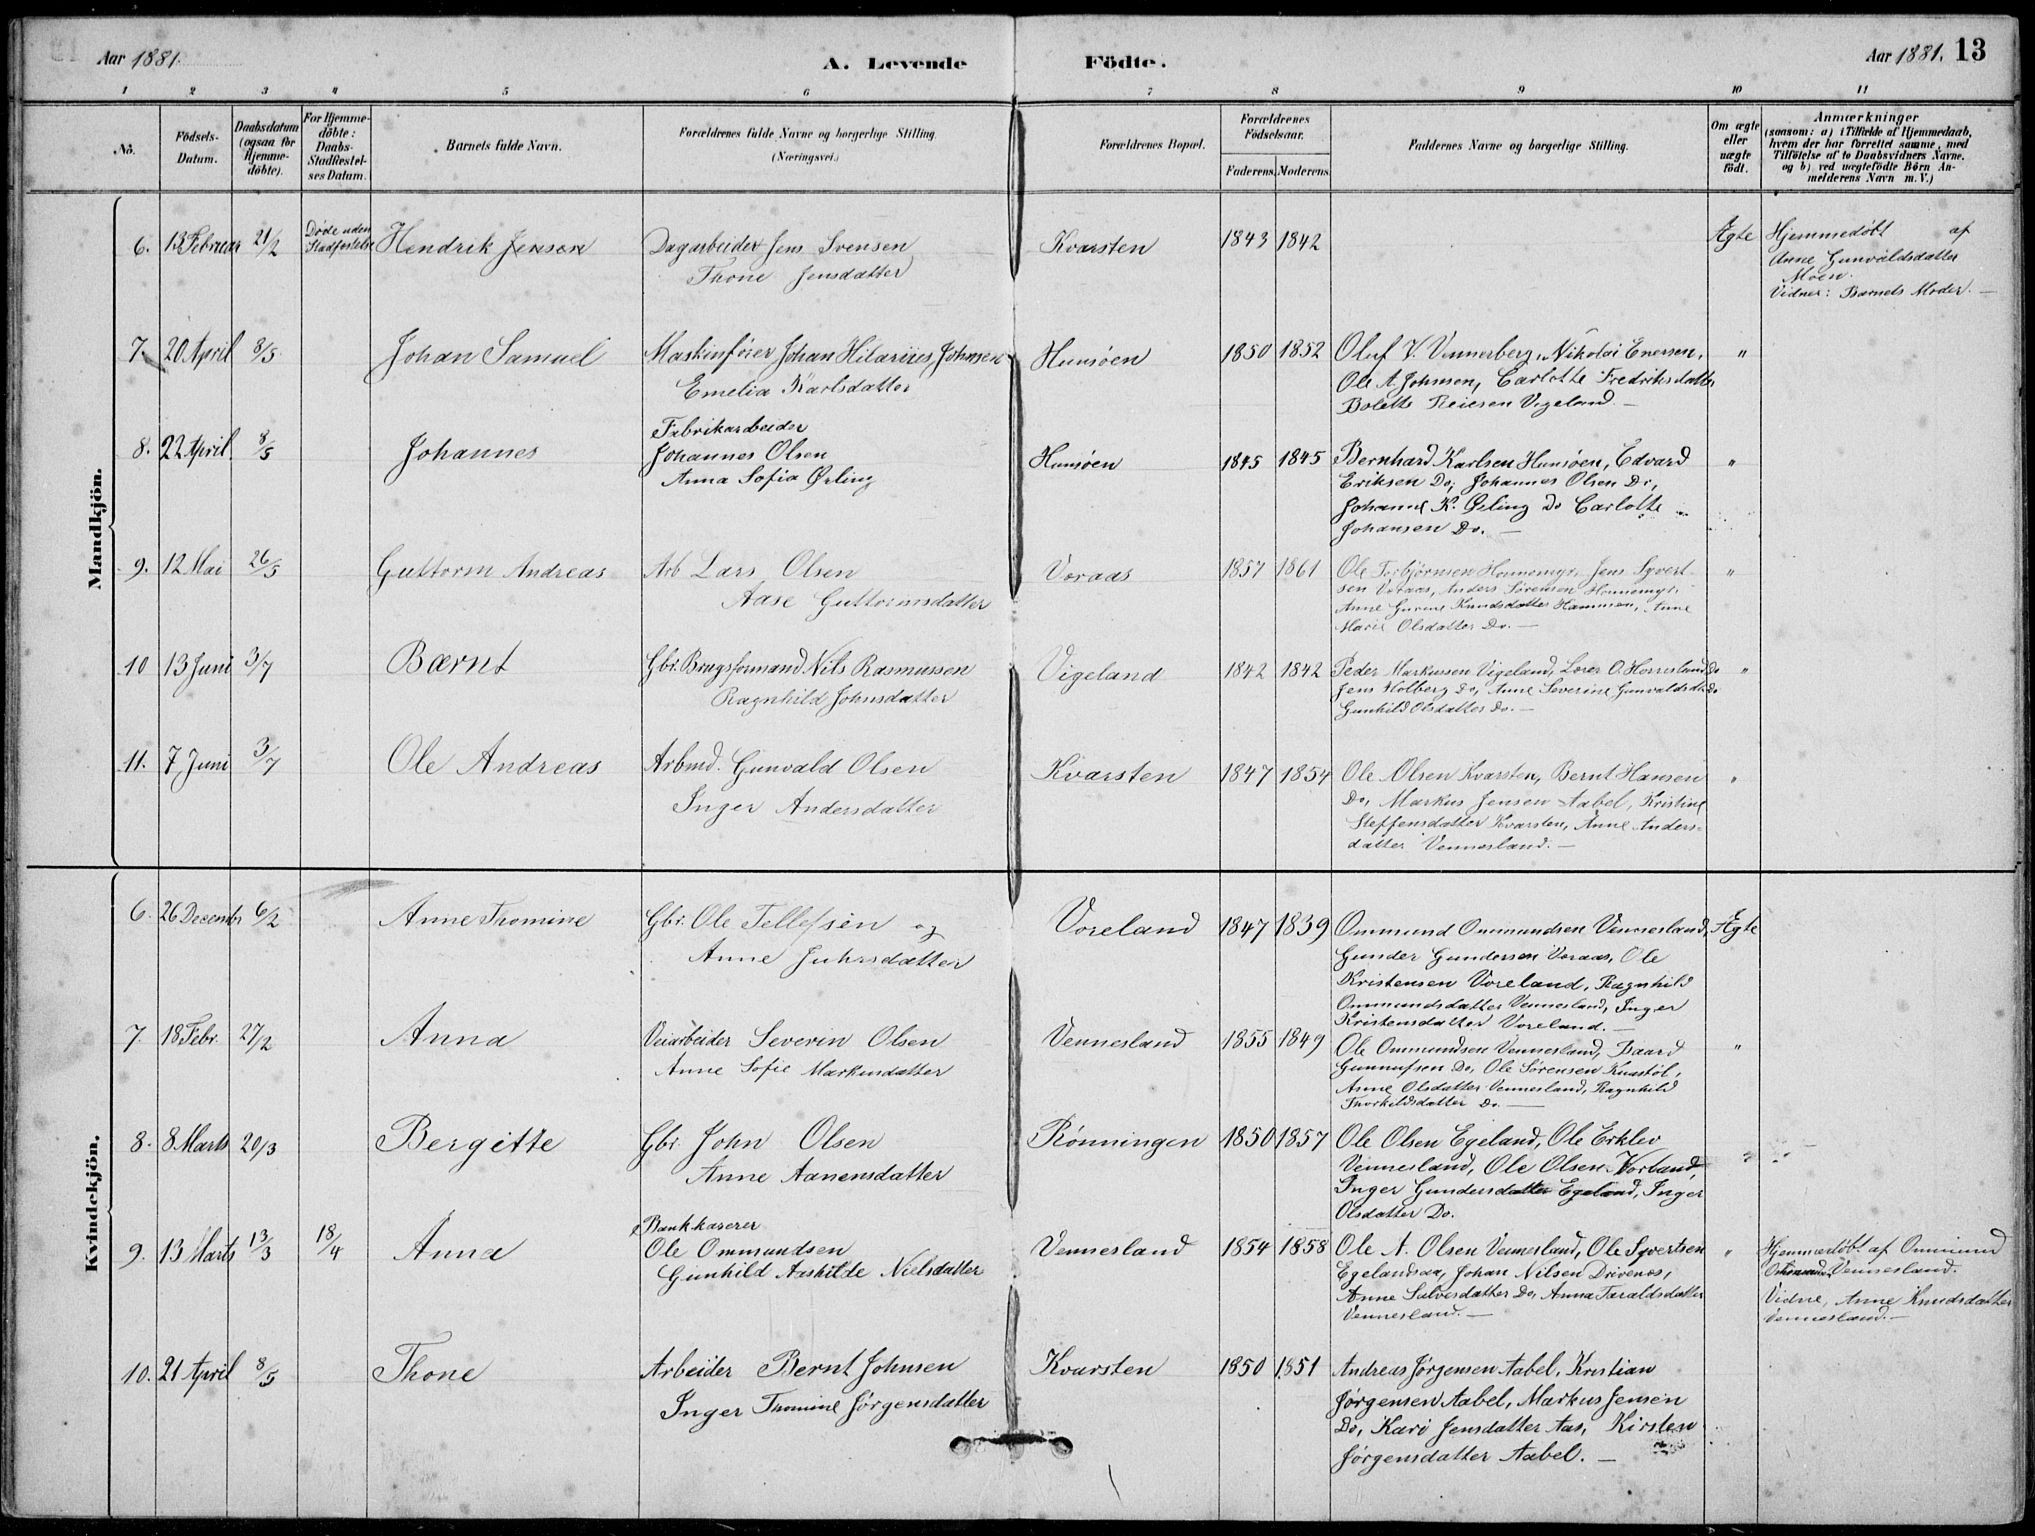 Aar 1881.
A. Levende Födte.
Aar 1881. 13
1 2 3 4 5 6 7 8 9 10 11
No.
Födsels-Datum.
Daabsdatum (ogsaa for Hjemme-döbte).
For Hjemme-döbte: Daabs-Stadfæstel-ses Datum.
Barnets fulde Navn.
Forældrenes fulde Navne og borgerlige Stilling. (Næringsvei.)
Forældrenes Bopæl.
Forældrenes Födselsaar.
Faderens. Moderens.
Faddernes Navne og borgerlige Stilling.
Om ægte eller uægte födt.
Anmærkninger
(saasom: a) i Tilfælde af Hjemmedaab,
hvem der har forrettet samme, med
Tilföielse af to Daabsvidners Navne.
og b) ved uægtefödte Börn An-
melderens Navn m.V.)
Mandkjön.
6. 13 Februar 21/2 Døde uden Stadfestelse Hendrik Jensen Dagarbeider Jens Svensen Kvarsten 1843 1842 Ægte Hjemmedøbt af
Thone Jensdatter Anne Gunvaldsdatter
Moen.
Vidner: Barnets Moder. —
7. 20 April 8/5 Johan Samuel Maskinfører Johan Hilarius Johnsen Hunsøen 1850 1852 Oluf V. Vennerberg, Nikolai Enersen, "
Emelia Karlsdatter Ole A. Johnsen, Carlotte Fredriksdatter
Bolette Reiersen Vigeland. —
Fabrikarbeider
8. 22 April 8/5 Johannes Johannes Olsen Hunsøen 1845 1845 Bernhard Karlsen Hunsøen, Edvard "
Anna Sofia Ørling Eriksen Do, Johannes Olsen Do,
Johanne K. Ørling Do Carlotte
Johansen Do. —
9. 12 Mai 26/5 Guttorm Andreas Arb Lars Olsen Voraas 1857 1861 Ole Torbjørnsen Honnemyr, Jens Syvert- "
Aase Guttormsdatter sen Voraas, Anders Sørensen Honnemyr,
Anne Gurine Knudsdatter Hammen, Anne
Marie Olsdatter Do. —
10 13 Juni 3/7 Bærnt Gbr. Brugsformand Nils Rasmussen Vigeland 1842 1842 Peder Markussen Vigeland, O. Do "
Ragnhild Johnsdatter Jens Holberg Do, Anne Severine Gunvaldsdtr Do
Gunhild Olsdatter Do. —
11. 7 Juni 3/7 Ole Andreas Arbmd. Gunvald Olsen Kvarsten 1847 1854 Ole Olsen Kvarsten, Bernt Hansen "
Inger Andersdatter Do, Markus Jensen Aabel, Kristine
Steffensdatter Kvarsten, Anne Anders-
datter Vennesland. —
Kvindekjön.
6. 26 Decembr 6/2 Anne Tromine Gbr. Ole Tellefsen og Voreland 1847 1839 Ommund Ommundsen Vennesland, Ægte
Anne Juhrsdatter Gunder Gundersen Voraas, Ole
Kristensen Voreland, Ragnhild
Ommundsdatter Vennesland, Inger
Kristensdatter Voreland. —
7. 18 Febr. 27/2 Anna Veiarbeider Severin Olsen Vennesland 1855 1849 Ole Ommundsen Vennesland, Baard "
Anne Sofie Markusdatter Gunnufsen Do, Ole Sørensen Kvastøl,
Anne Olsdatter Vennesland, Ragnhild
Thorkildsdatter Do. —
8. 8 Marts 20/3 Bergitte Gbr. John Olsen Rønningen 1850 1857 Ole Olsen Egeland, Ole Erklev "
Anne Aanensdatter Vennesland, Ole Olsen Vorland,
Inger Gundersdatter Egeland, Inger
Olsdatter Do.
Bankkaserer
9. 13 Marts 13/3 18/4 Anna Ole Ommundsen Vennesland 1854 1858 Ole A. Olsen Vennesland, Ole Syvertsen " Hjemmedøbt af Ommund
Gunhild Aashilde Nielsdatter Egelandsaa, Johan Nilsen Drivenes, Vennesland.
Anne Salvesdatter Do, Anna Taraldsdatter Vidne, Anne Knudsdatter
Vennesland. — Vennesland. —
10. 21 April 8/5 Thone Arbeider Bernt Johnsen Kvarsten 1850 1851 Andreas Jørgensen Aabel, Kristian
Inger Tromine Jørgensdatter Jørgensen Aabel, Markus Jensen
Do, Kari Jensdatter Aas, Kirsten
Jørgensdatter Aabel. —